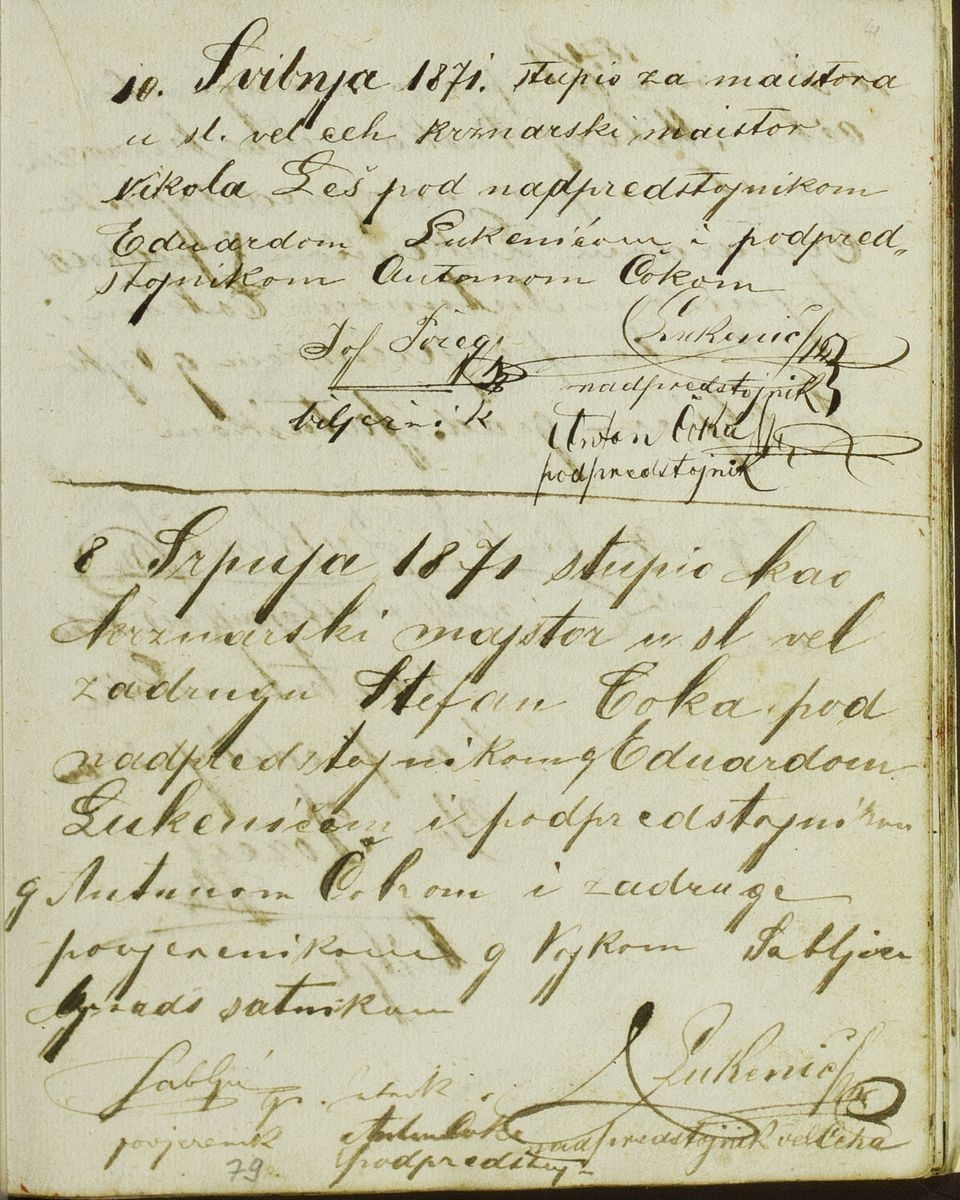 10. Svibnja 1871. stupio za maistora
u sl. vel ceh krznarski maistor
Nikola Leš pod nadpredstojnikom
Eduardom Lukenićom i podpred„
stojnikom Antonom Čokom
Jos
Lukenić
nadpredstojnik
biljeznik
Anton Čoka
podpredstojnik
8 Srpnja 1871 stupio kao
krznarski majstor u sl vel
zadrugu Stefan Čoka pod
nadpredstojnikom g Eduardom
Lukenićem i podpredstojnikom
g Antunom Čokom i zadruge
povjerenikom g Vojkom
satnikom
Lukenić
povjerenik
Antun Čoka
nadpredstojnik vel Ceha
podpredstoj-
79